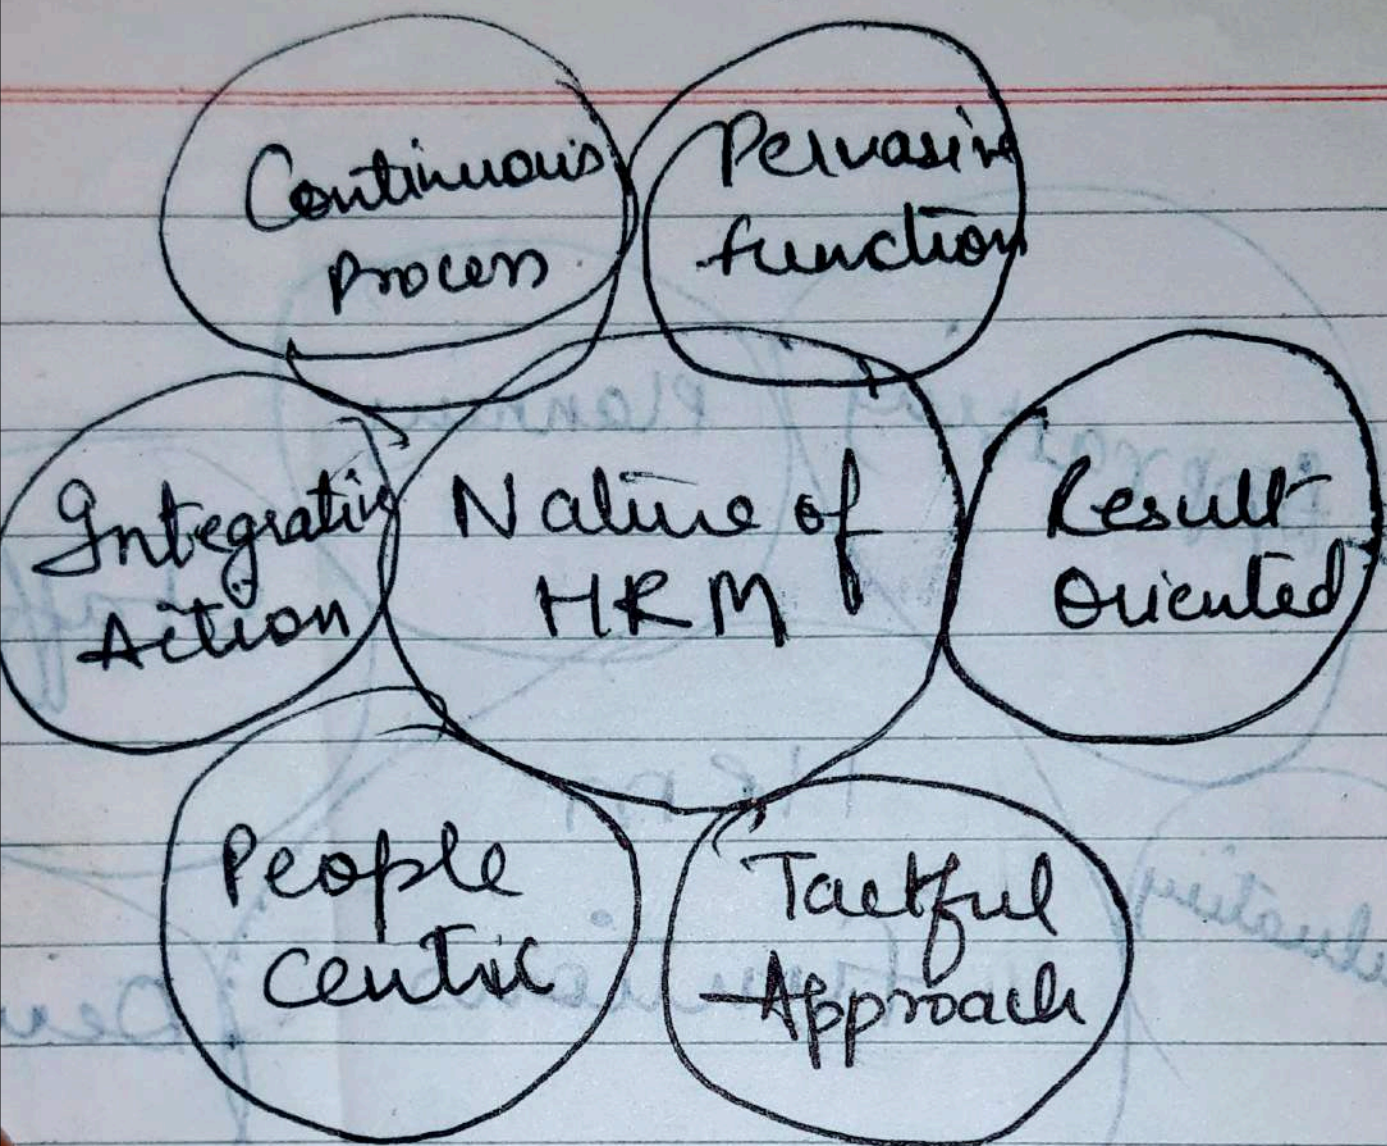 Continuous
process
Pervasive
function
Integrative
Action
Nature of
HRM
Result
Oriented
People
Centric
Tactful
Approach
Planning
HRM